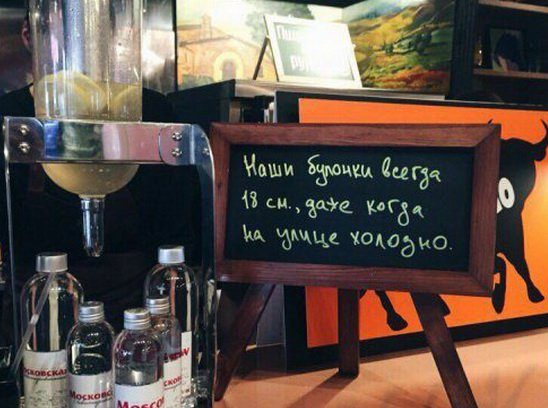 Наши булочки всегда
18 см., даже когда
на улице холодно.
Московская
Московс
Moscow